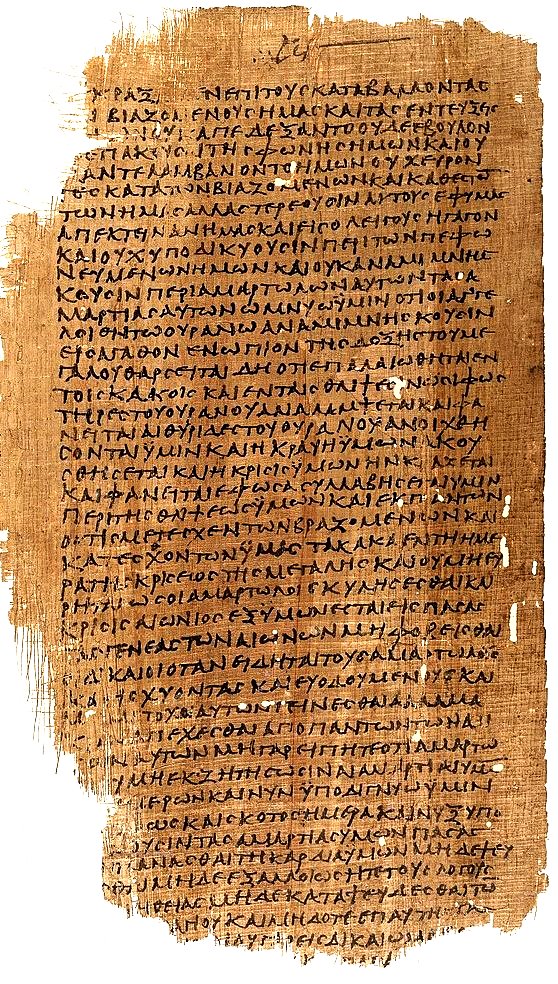 ΚΡΑΞ ΕΝΕΠΙΤΟΥΣΚΑΤΑΒΑΛΛΟΝΤΑΣ
ΒΙΑΖΟΜΕΝΟΥΣΗΜΑΣΚΑΙΤΑΣΕΝΤΕΥΞΕΙΣ
ΝΟΥΚΑΠΕΔΕΞΑΝΤΟΟΥΔΕΕΒΟΥΛΟΝ
ΕΠΑΚΟΥΣΑΙΤΗΣΦΩΝΗΣΗΜΩΝΚΑΙΟΥ
ΑΝΤΕΛΑΜΒΑΝΟΝΤΟΗΜΩΝΟΥΧΕΥΡΟΝ
ΤΕΣΚΑΤΑΤΩΝΒΙΑΖΟΜΕΝΩΝΚΑΙΚΑΘΕΣΤΩ
ΤΩΝΗΜΑΣΑΛΛΑΣΤΕΡΕΟΥΣΙΝΑΥΤΟΥΣΕΦΥΜΑΣ
ΑΠΕΚΤΕΙΝΑΝΗΜΑΣΚΑΙΕΙΣΟΛΕΙΓΟΥΣΗΓΑΓΟΝ
ΚΑΙΟΥΧΥΠΟΔΙΚΥΟΥΣΙΝΠΕΡΙΤΩΝΠΕΦΩ
ΝΕΥΜΕΝΩΝΗΜΩΝΚΑΙΟΥΚΑΝΑΜΙΜΝΗΣ
ΚΟΥΣΙΝΠΕΡΙΑΜΑΡΤΩΛΩΝΑΥΤΩΝΤΑΣΑ
ΜΑΡΤΙΑΣΑΥΤΩΝΟΜΝΥΩΫΜΙΝΟΤΙΟΙΑΓΓΕ
ΛΟΙΕΝΤΩΟΥΡΑΝΩΑΝΑΜΙΜΝΗΣΚΟΥΣΙΝ
ΕΙΣΑΓΑΘΟΝΕΝΩΠΙΟΝΤΗΣΔΟΞΗΣΤΟΥΜΕ
ΓΑΛΟΥΘΑΡΣΕΙΤΑΙΔΗΟΤΙΕΠΑΛΑΙΩΘΗΤΑΙΕΝ
ΤΟΙΣΚΑΚΟΙΣΚΑΙΕΝΤΑΙΣΘΛΙΨΕΣΙΝΩΣΙΦΩΣ
ΤΗΡΕΣΤΟΥΟΥΡΑΝΟΥΑΝΑΛΑΜΨΕΤΑΙΚΑΙΦΑ
ΝΕΙΤΑΙΑΙΘΥΡΙΔΕΣΤΟΥΟΥΡΑΝΟΥΑΝΟΙΧΘΗ
ΣΟΝΤΑΙΫΜΙΝΚΑΙΗΚΡΑΥΓΗΥΜΩΝΑΚΟΥ
ΣΘΗΣΕΤΑΙΚΑΙΗΚΡΙΣΙΣΫΜΩΝΗΝΚΡΑΖΕΤΑΙ
ΚΑΙΦΑΝΕΙΤΑΙΕΦΟΣΑΣΥΛΛΑΒΗΣΕΤΑΙΥΜΙΝ
ΠΕΡΙΤΗΣΘΛΙΨΕΩΣΫΜΩΝΚΑΙΕΚΠΑΝΤΩΝ
ΟΣΤΙΣΜΕΤΕΣΧΕΝΤΩΝΒΙΑΖΟΜΕΝΩΝΚΑΙ
ΚΑΤΕΣΧΟΝΤΩΝΫΜΑΣΤΑΚΑΚΑΕΝΤΗΗΜΕ
ΡΑΤΗΣΚΡΙΣΕΩΣΤΗΣΜΕΓΑΛΗΣΚΑΙΟΥΜΗΕΥ
ΡΗΤΑΙΩΣΟΙΑΜΑΡΤΩΛΟΙΣΚΥΛΗΣΕΣΘΑΙΚΑΙ
ΚΡΙΣΙΣΑΙΩΝΙΟΣΕΞΥΜΩΝΕΣΤΑΙΕΙΣΠΑΣΑΣ
ΤΑΣΓΕΝΕΑΣΤΩΝΑΙΩΝΩΝΜΗΦΟΒΕΙΣΘΑΙ
ΔΙΚΑΙΟΙΟΤΑΝΕΙΔΗΤΑΙΤΟΥΣΑΜΑΡΤΩΛΟΥΣ
ΚΑΤΙΣΧΥΟΝΤΑΣΚΑΙΕΥΟΔΟΥΜΕΝΟΥΣΚΑΙ
ΤΟΧΟΙΑΥΤΩΝΓΕΙΝΕΣΘΑΙΑΛΛΑΜΑ
ΑΠΕΧΕΣΘΑΙΑΠΟΠΑΝΤΩΝΤΩΝΑΔΙ
ΑΥΤΩΝΜΗΓΑΡΕΙΠΗΤΕΟΤΙΑΜΑΡΤΩ
ΜΗΕΚΖΗΤΗΣΩΣΙΝΑΙΑΜΑΡΤΙΑΙΥΜΩ
ΙΕΡΩΝΚΑΙΝΥΝΥΠΟΔΙΓΝΥΩΥΜΙΝ
ΦΩΣΚΑΙΣΚΟΤΟΣΗΜΕΡΑΚΑΙΝΥΞΥΠΟ
ΟΥΣΙΝΤΑΣΑΜΑΡΤΙΑΣΥΜΩΝΠΑΣΑΣ
ΠΛΑΝΑΣΘΑΙΤΗΚΑΡΔΙΑΥΜΩΝΜΗΔΕΨΕΥ
ΜΗΔΕΕΞΑΛΛΟΙΩΣΗΤΕΤΟΥΣΛΟΓΟΥΣ
ΘΕΙΑΣΜΗΔΕΚΑΤΑΨΕΥΔΕΣΘΑΙΤΩ
ΚΑΙΜΗΔΟΤΕΕΠ